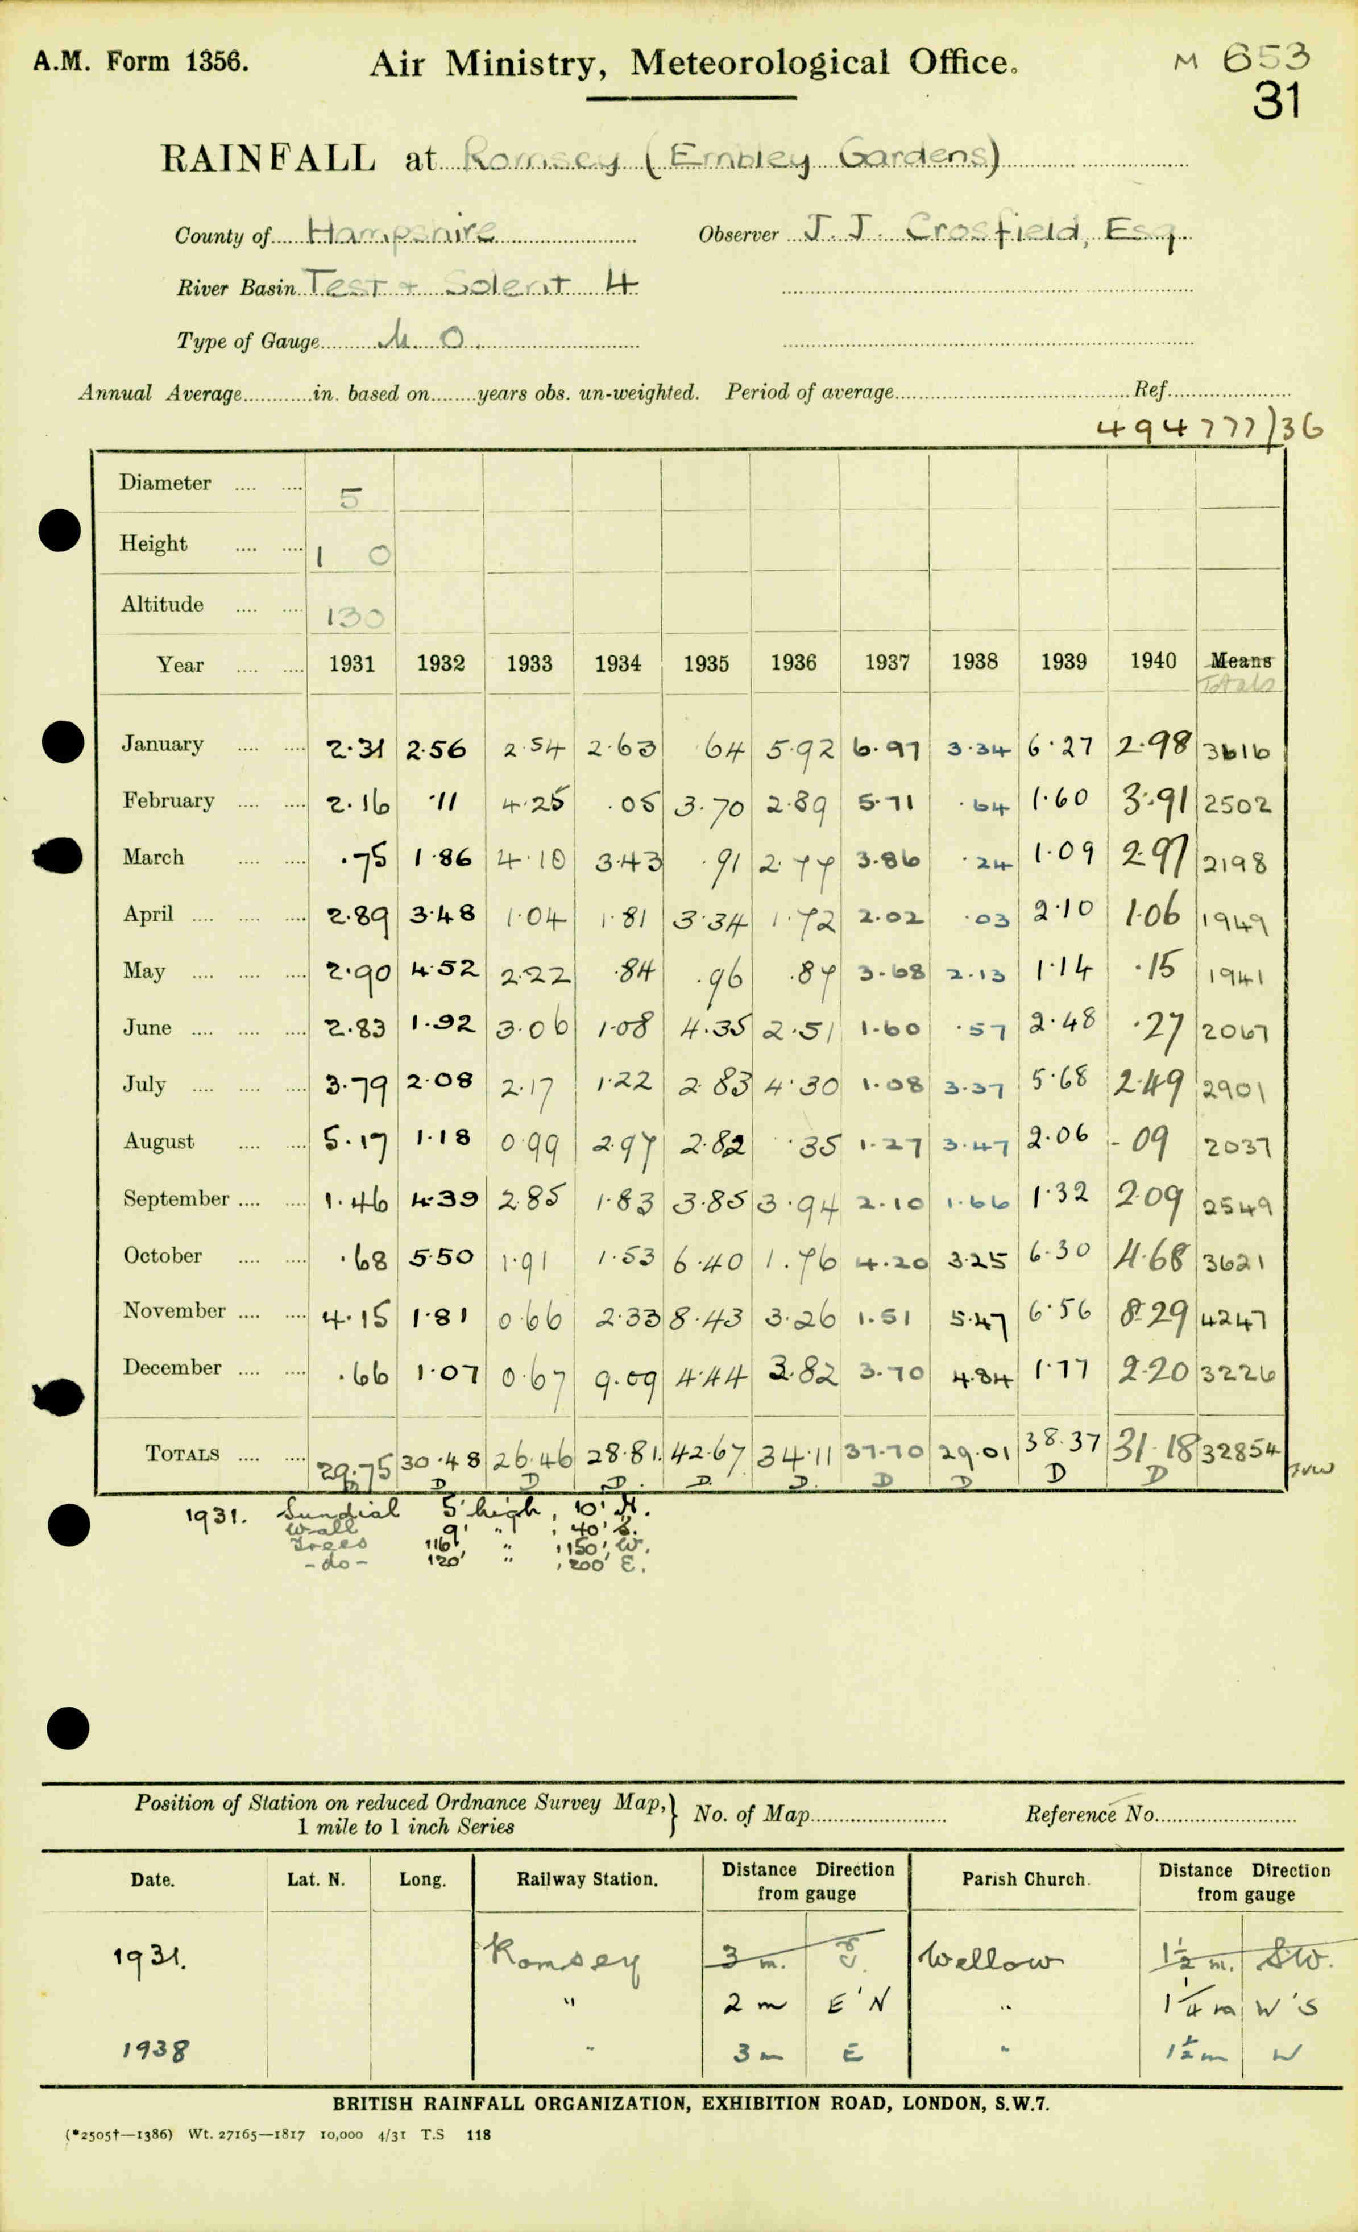 A.M. Form 1356. Air Ministry, Meteorological Office. M 653
31
RAINFALL at Romsey (Embley Gardens)
County of Hampshire Observer J. J. Crosfield, Esq
River Basin Test + Solent 4
Type of Gauge M O.
Annual Average............in. based on........years obs. un-weighted. Period of average..............Ref..............
494777/36
Diameter .... .... 5
Height .... .... 1 0
Altitude .... .... 130
Year .... .... 1931 1932 1933 1934 1935 1936 1937 1938 1939 1940 Means
Totals
January .... .... 2.31 2.56 2.54 2.63 64 5.92 6.97 3.34 6.27 2.98 3616
February .... .... 2.16 .11 4.25 .05 3.70 2.89 5.71 .64 1.60 3.91 2502
March .... .... .75 1.86 4.10 3.43 .91 2.77 3.86 .24 1.09 2.97 2198
April .... .... .... 2.89 3.48 1.04 1.81 3.34 1.72 2.02 .03 2.10 1.06 1949
May .... .... .... 2.90 4.52 2.22 .84 .96 .87 3.68 2.13 1.14 .15 1941
June .... .... .... 2.83 1.92 3.06 1.08 4.35 2.51 1.60 .57 2.48 .27 2067
July .... .... .... 3.79 2.08 2.17 1.22 2.83 4.30 1.08 3.37 5.68 2.49 2901
August .... .... 5.17 1.18 0.99 2.97 2.82 .35 1.27 3.47 2.06 - 09 2037
September .... .... 1.46 4.39 2.85 1.83 3.85 3.94 2.10 1.66 1.32 2.09 2549
October .... .... .68 5.50 1.91 1.53 6.40 1.76 4.20 3.25 6.30 4.68 3621
November .... .... 4.15 1.81 0.66 2.33 8.43 3.26 1.51 5.47 6.56 8.29 4247
December .... .... .66 1.07 0.67 9.09 4.44 3.82 3.70 4.84 1.77 2.20 3226
TOTALS .... .... 29.75 30.48 26.46 28.81 42.67 34.11 37.70 29.01 38.37 31.18 32854
D D D D D D D D D
1931. Sundial 5' high, 10' N.
Wall 9' " , 40' S.
Trees 116' " , 150' W.
-do- 120' " , 200' E.
Position of Station on reduced Ordnance Survey Map, 1 mile to 1 inch Series } No. of Map.............. Reference No..............
Date. Lat. N. Long. Railway Station. Distance Direction from gauge Parish Church. Distance Direction from gauge
1931. Romsey 3 m. E. Wellow 1½ m. SW.
" 2 m E'N " 1¼ m W'S
1938 " 3 m E " 1½ m W
BRITISH RAINFALL ORGANIZATION, EXHIBITION ROAD, LONDON, S.W.7.
(*2505†—1386) Wt. 27165—1817 10,000 4/31 T.S 118